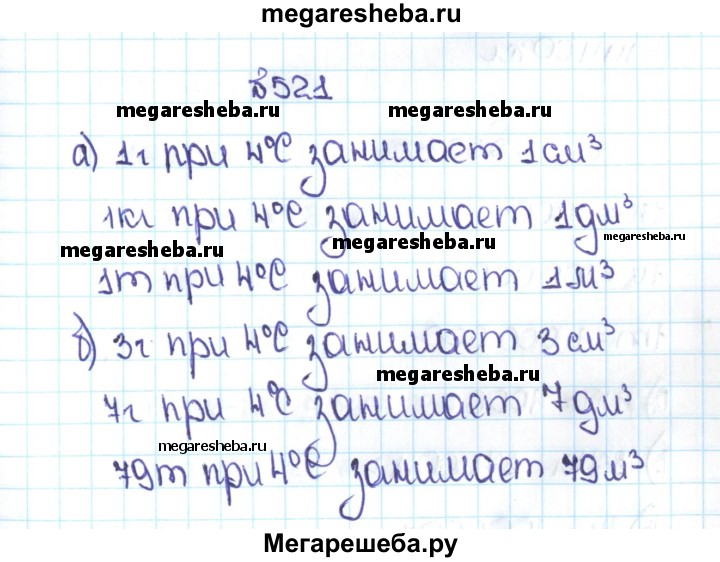 megaresheba.ru
№521
megaresheba.ru megaresheba.ru
а) 1г при 4°С занимает 1см³
1кг при 4°С занимает 1дм³
megaresheba.ru megaresheba.ru megaresheba.ru
1т при 4°С занимает 1м³
б) 3г при 4°С занимает 3см³
megaresheba.ru
7г при 4°С занимает 7дм³
megaresheba.ru
79т при 4°С занимает 79м³
Мегарешеба.ру